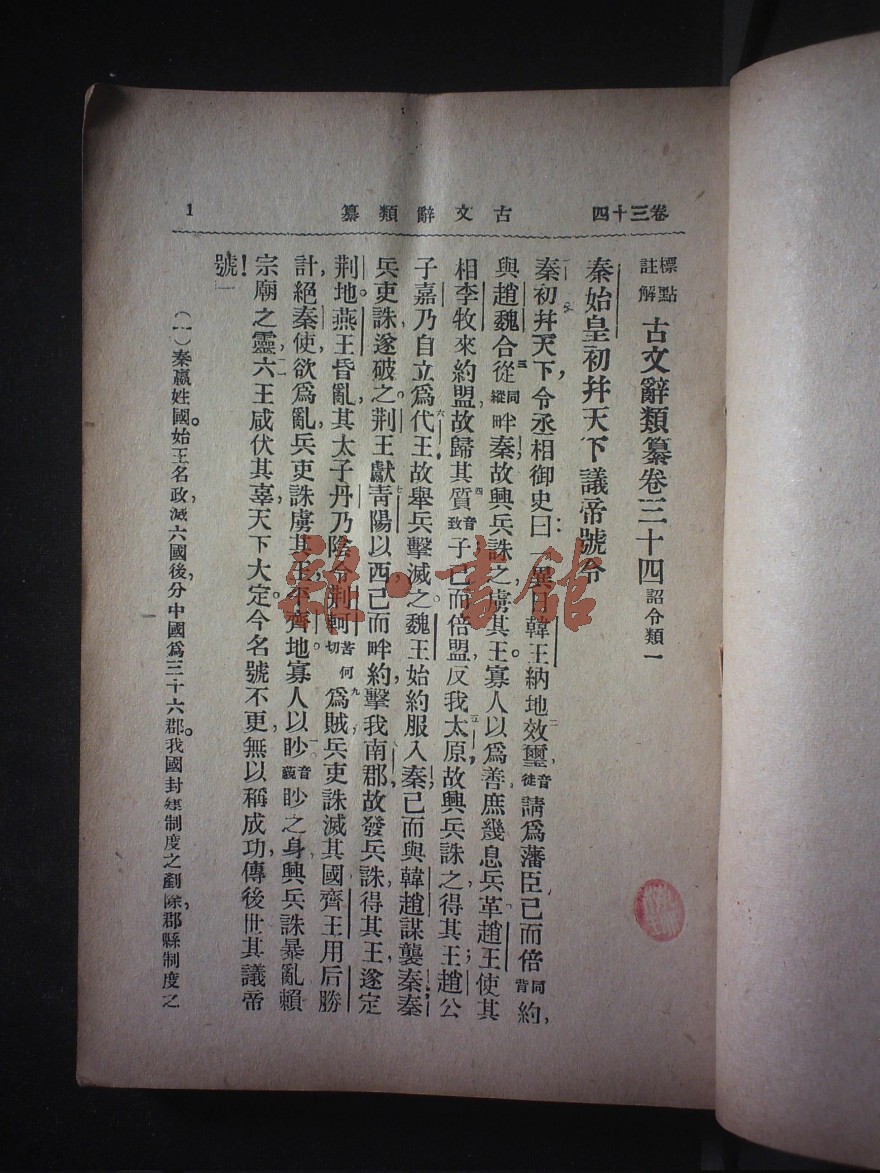 卷三十四 古文辭類纂 1
標點註解 古文辭類纂卷三十四 詔令類一
秦始皇初并天下議帝號令
秦初并天下,令丞相御史曰:「異日韓王納地效璽,音徙請為藩臣,已而倍同背約,
與趙魏合從同縱畔秦,故興兵誅之,虜其王。寡人以為善,庶幾息兵革。趙王使其
相李牧來約盟,故歸其質音致子,已而倍盟,反我太原,故興兵誅之,得其王。趙公
子嘉乃自立為代王,故舉兵擊滅之。魏王始約服入秦,已而與韓趙謀襲秦,秦
兵吏誅,遂破之。荆王獻青陽以西,已而畔約,擊我南郡,故發兵誅,得其王,遂定
荆地。燕王昏亂,其太子丹乃陰令荆軻苦何切為賊,兵吏誅滅其國。齊王用后勝
計,絕秦使,欲為亂,兵吏誅虜其王,平齊地。寡人以眇眇之身,興兵誅暴亂,賴
宗廟之靈,六王咸伏其辜,天下大定。今名號不更,無以稱成功,傳後世。其議帝
號!」
(一)秦嬴姓國。始王名政,滅六國後,分中國為三十六郡。我國封建制度之剷除,郡縣制度之
雜·書館